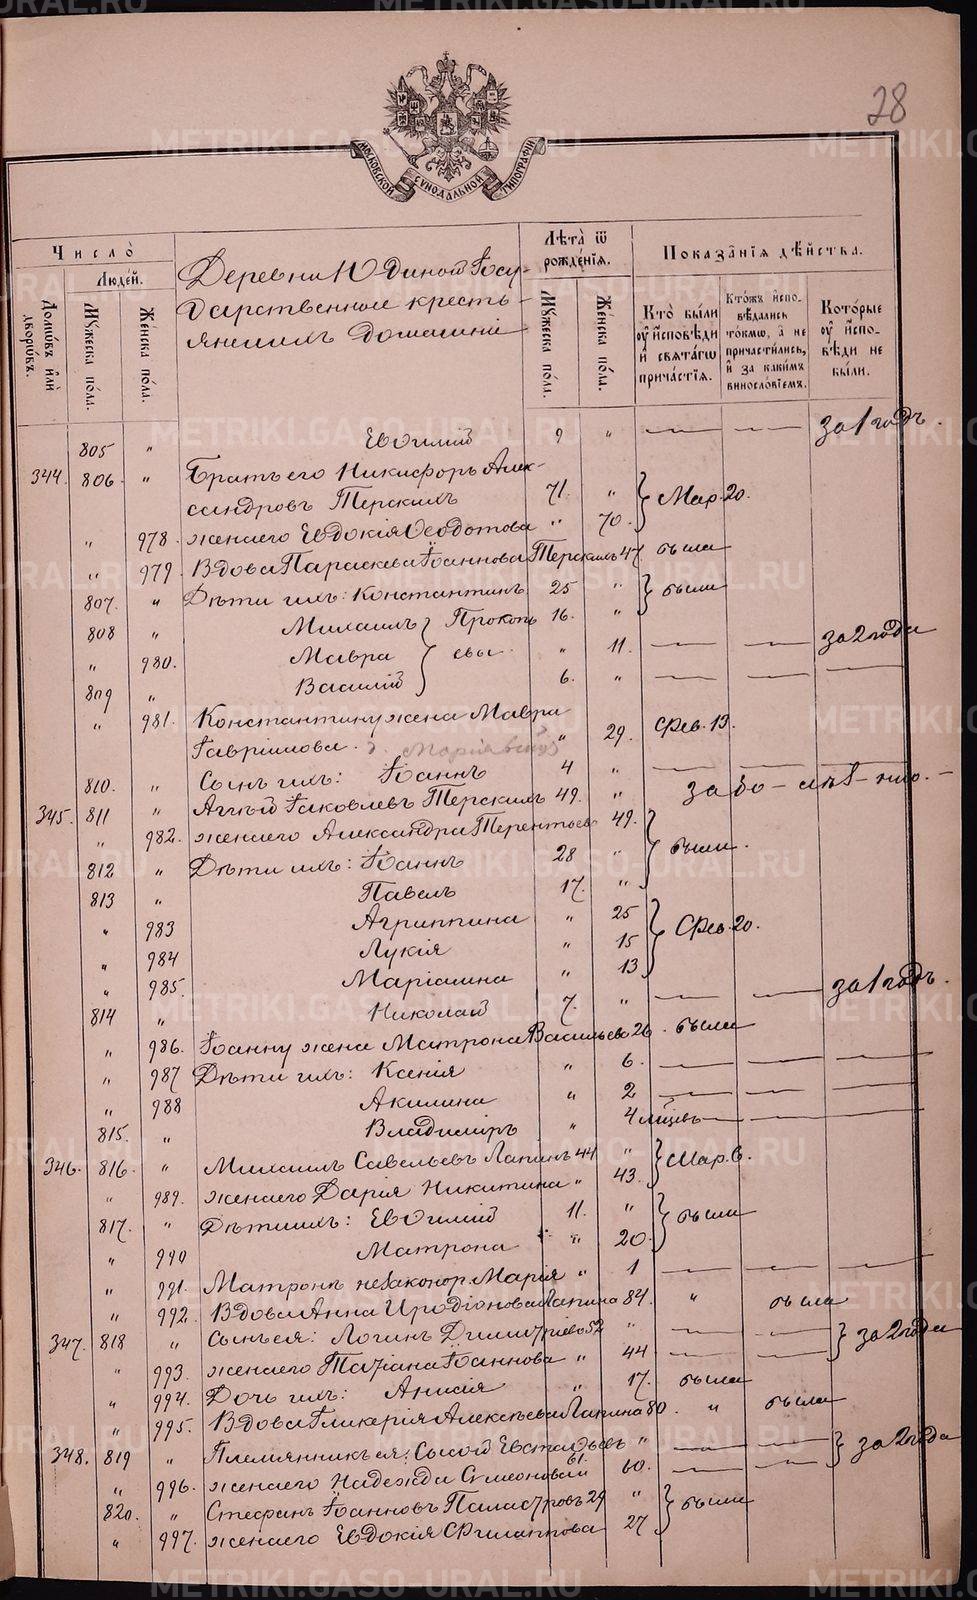 METRIKI.GASO-URAL.RU
28
МОСКОВСКОЙ СѴНОДАЛЬНОЙ ТИПОГРАФІИ
Число̀
Людей.
Домѡвъ и҆лѝ дворѡвъ.
Мꙋжеска по́ла.
Же́нска по́ла.
Деревни Юдиной Госу-
дарственные кресть-
яне и ихъ домашніе
Лѣта̀ ѿ рожде́нїѧ.
Мꙋжеска по́ла.
Же́нска по́ла.
Показа̑нїѧ дѣ́йства.
Кто̀ бы́ли ᲂу҆ и҆́сповѣди и҆ свѧта́гѡ прича́стїѧ.
Кто́жъ и҆спо-вѣ́дались то́кмѡ, а҆ не причасти́лись, и҆ за каки́мъ винословїемъ.
Кото́рые ᲂу҆ и҆́спо-вѣди не бы́ли.
805 " Евѳимій 9 " — — за 1 годъ.
344. 806. " Братъ его Никифоръ Алек-
сандровъ Терскихъ 71. " } Мар. 20.
" 978. жена его Евдокія Ѳеодотова " 70.
" 979. Вдова Параскева Іоаннова Терскихъ 47 была
807. " Дѣти ихъ: Константинъ 25 " } были
808 " Михаилъ } Прокопь 16. "
" 980. Мавра } евы. " 11. — — за 2 года
809 " Василій 6. " — — —
" 981. Константину жена Мавра
Гавріилова. " 29. Фев. 13.
810. " Сынъ ихъ: Іоаннъ 4 " — — —
345. 811 " Аггѣй Іаковлевъ Терскихъ 49. " за бо-лѣз-нію. —
" 982. жена его Александра Терентьев 49. } были.
812 " Дѣти ихъ: Іоаннъ 28 "
813 " Павелъ 17. "
" 983 Агриппина " 25 } Фев. 20.
" 984 Лукія " 15
" 985. Маріамна " 13
814 " Николай 7. " — — за 1 годъ.
" 986. Іоанну жена Матрона Васильев 26. была
" 987 Дѣти ихъ: Ксенія " 6. — — —
" 988 Акилина " 2 — — —
815. " Владиміръ " 4 мѣсев — — —
346. 816. " Михаилъ Савельевъ Лапинъ 44 " } Мар. 6.
" 989. жена его Дарія Никитина " 43.
817. " Дѣти ихъ: Евѳимій 11. " } были
" 990 Матрона " 20.
" 991. Матроны незаконор. Марія " 1 — — —
" 992. Вдова Анна Иродіонова Лапина 84. " была
347. 818 " Сынъ ея: Логинъ Димитріев 52 " — — } за 2 года
" 993. жена его Татіана Іоаннова " 44 — —
" 994. Дочь ихъ: Анисія " 17. была
" 995. Вдова Гликерія Алексѣева Лапина 80. " была
348. 819 " Племянникъ ея: Сысой Евстафьевъ " — — } за 2 года
61.
" 996. жена его Надежда Сѵмеонова 60. — —
820. " Стефанъ Іоанновъ 29 " } были
" 997. жена его Евдокія Филиппова 27.